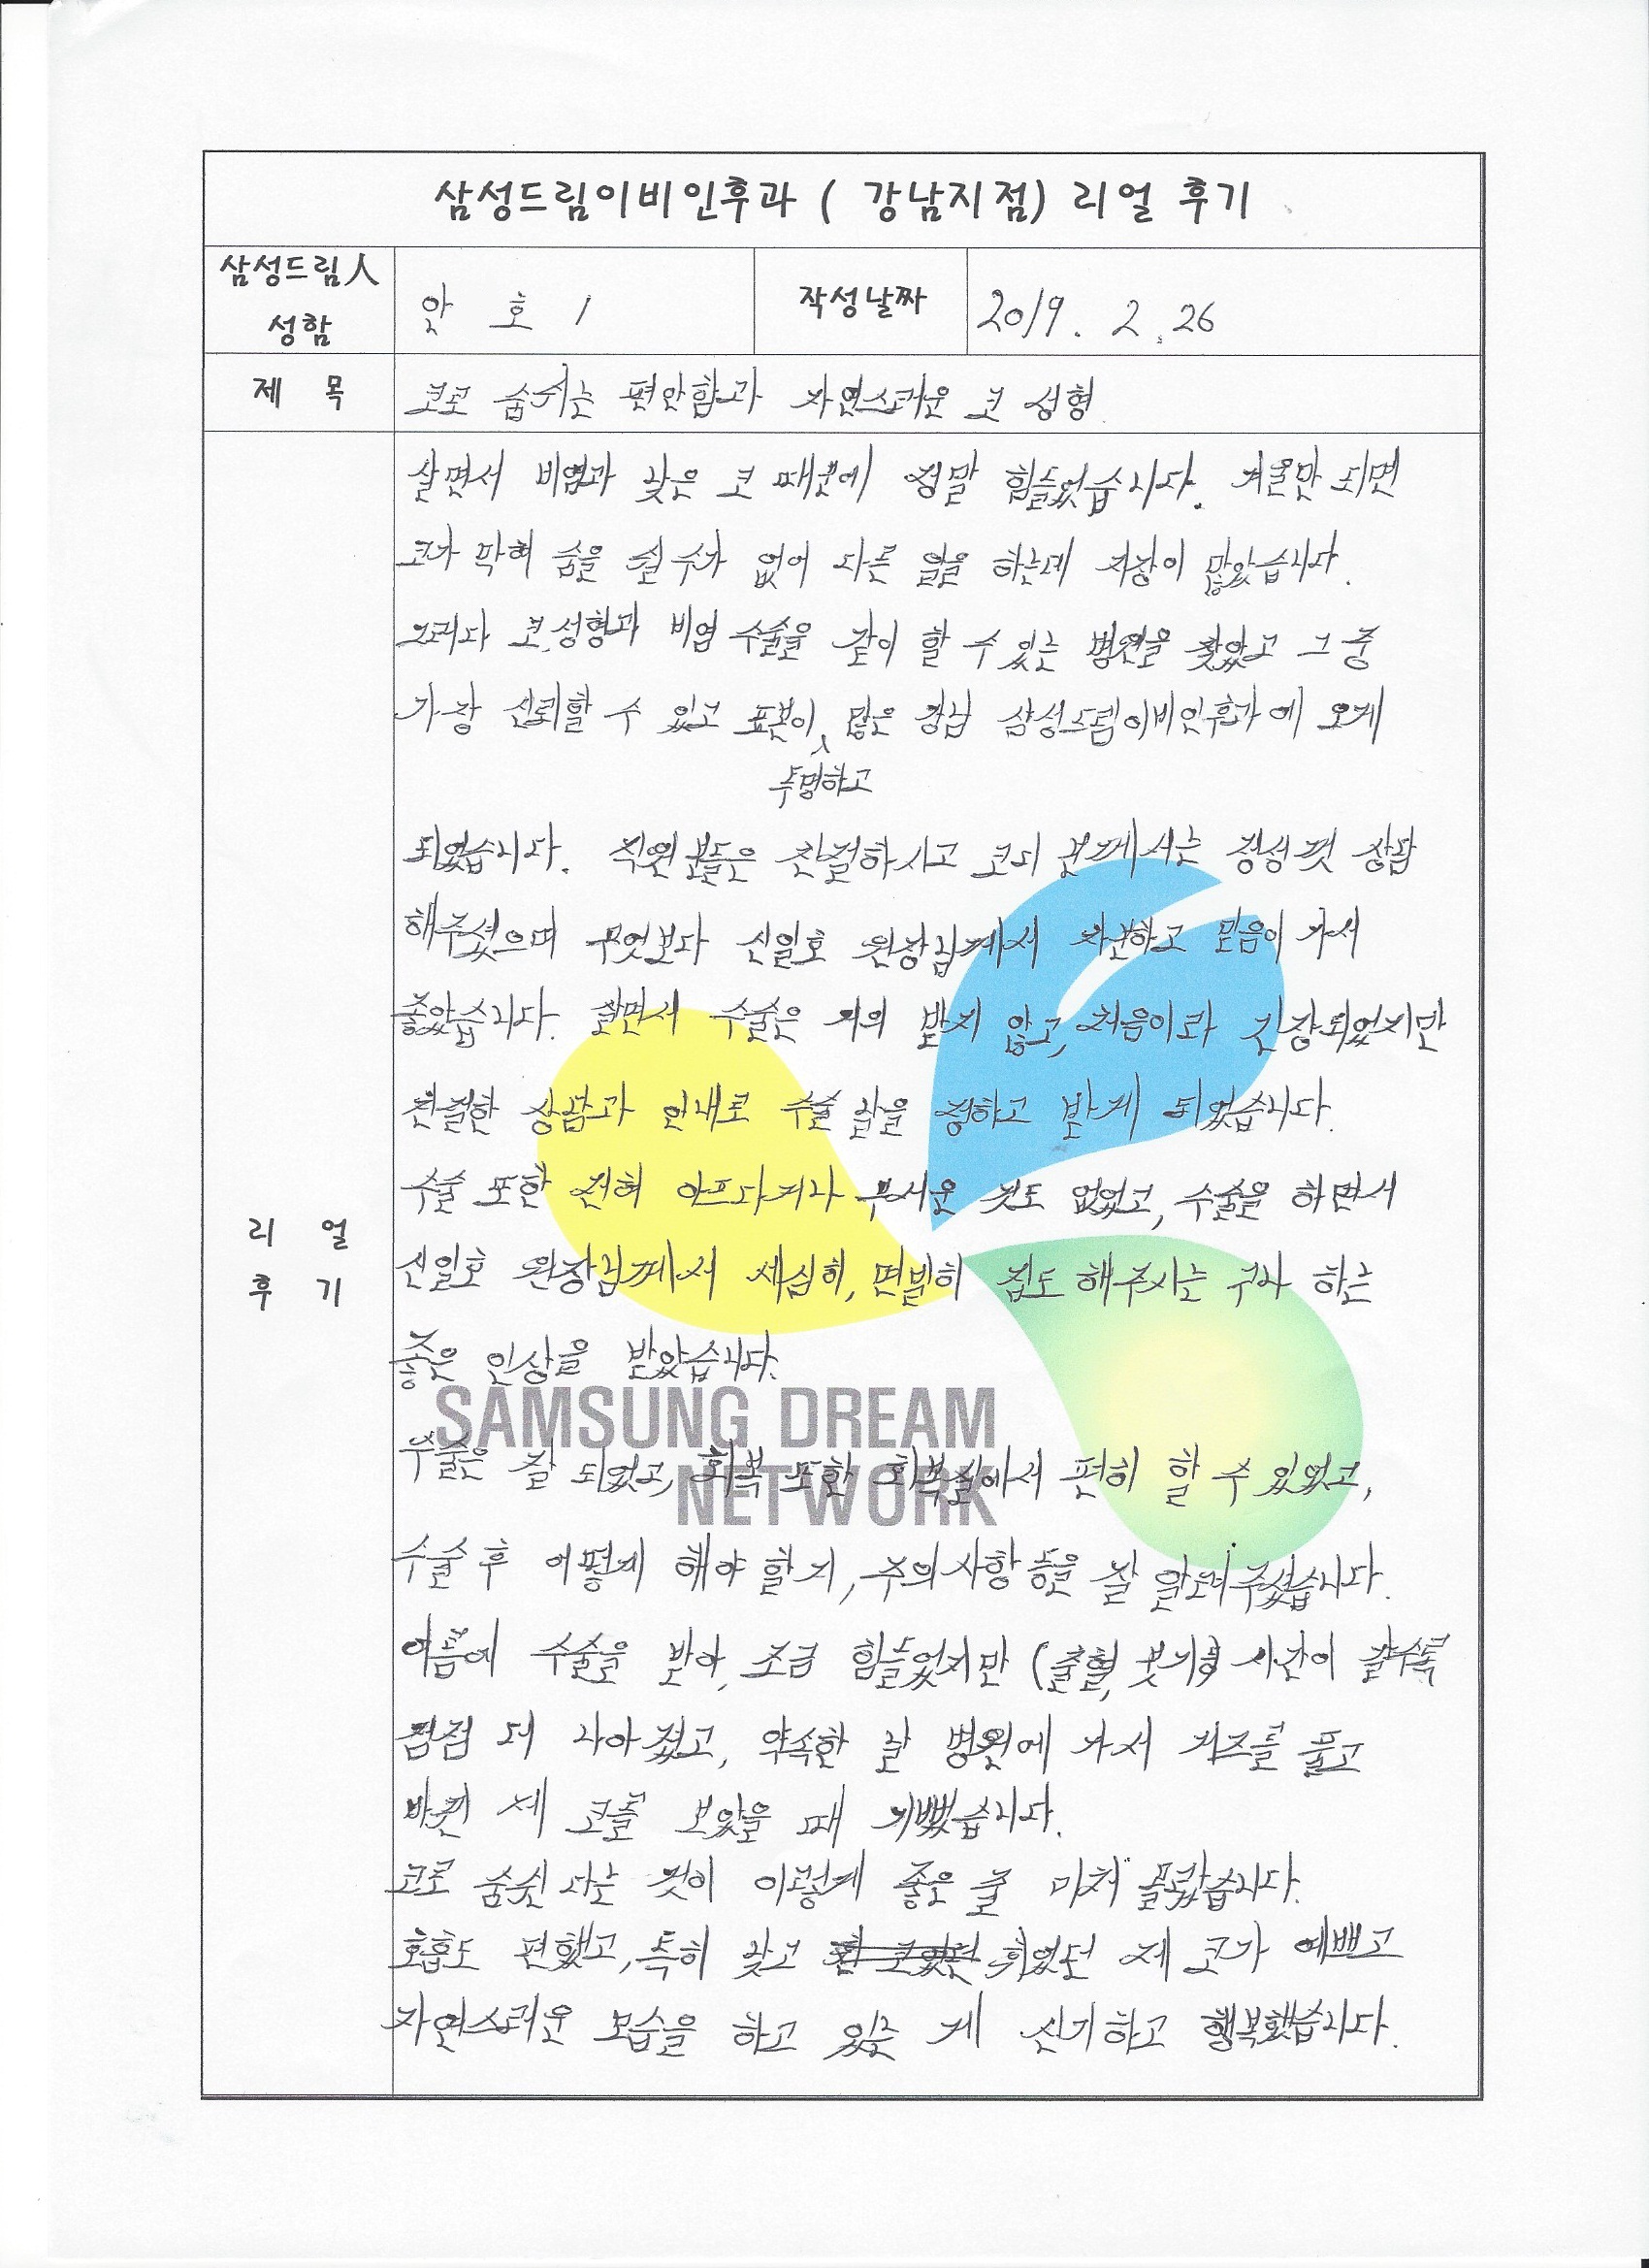 삼성드림이비인후과 ( 강남지점) 리얼 후기
삼성드림人 성함
안 호
작성날짜
2019. 2. 26
제 목
코로 숨쉬는 편안함과 자연스러운 코 성형
리 얼 후 기
살면서 비염과 낮은 코 때문에 정말 힘들었습니다. 겨울만 되면
코가 막혀 숨을 쉴 수가 없어 다른 일을 하는데 지장이 많았습니다.
그러다 코 성형과 비염 수술을 같이 할 수 있는 병원을 찾았고 그 중
가장 신뢰할 수 있고 표본이 많은 강남 삼성드림이비인후과에 오게
투명하고
되었습니다. 직원분들은 친절하시고 코디 분께서는 정성껏 상담
해주셨으며 무엇보다 신일호 원장님께서 차분하고 믿음이 가서
좋았습니다. 살면서 수술은 거의 받지 않고, 처음이라 긴장되었지만
친절한 상담과 안내로 수술 날을 정하고 받게 되었습니다.
수술 또한 전혀 아프다거나 무서운 것도 없었고, 수술을 하면서
신일호 원장님께서 세심히, 면밀히 집도 해주시는 구나 하는
좋은 인상을 받았습니다.
SAMSUNG DREAM
NETWORK
수술은 잘 되었고, 회복 또한 회복실에서 편히 할 수 있었고,
수술 후 어떻게 해야 할지, 주의사항 등을 잘 알려주셨습니다.
여름에 수술을 받아, 조금 힘들었지만 (출혈, 붓기) 시간이 갈수록
점점 더 나아졌고, 약속한 날 병원에 가서 거즈를 풀고
바뀐 제 코를 보았을 때 기뻤습니다.
코로 숨쉰다는 것이 이렇게 좋은 줄 미처 몰랐습니다.
호흡도 편했고, 특히 낮고 휘었던 제 코가 예쁘고
자연스러운 모습을 하고 있는 게 신기하고 행복했습니다.